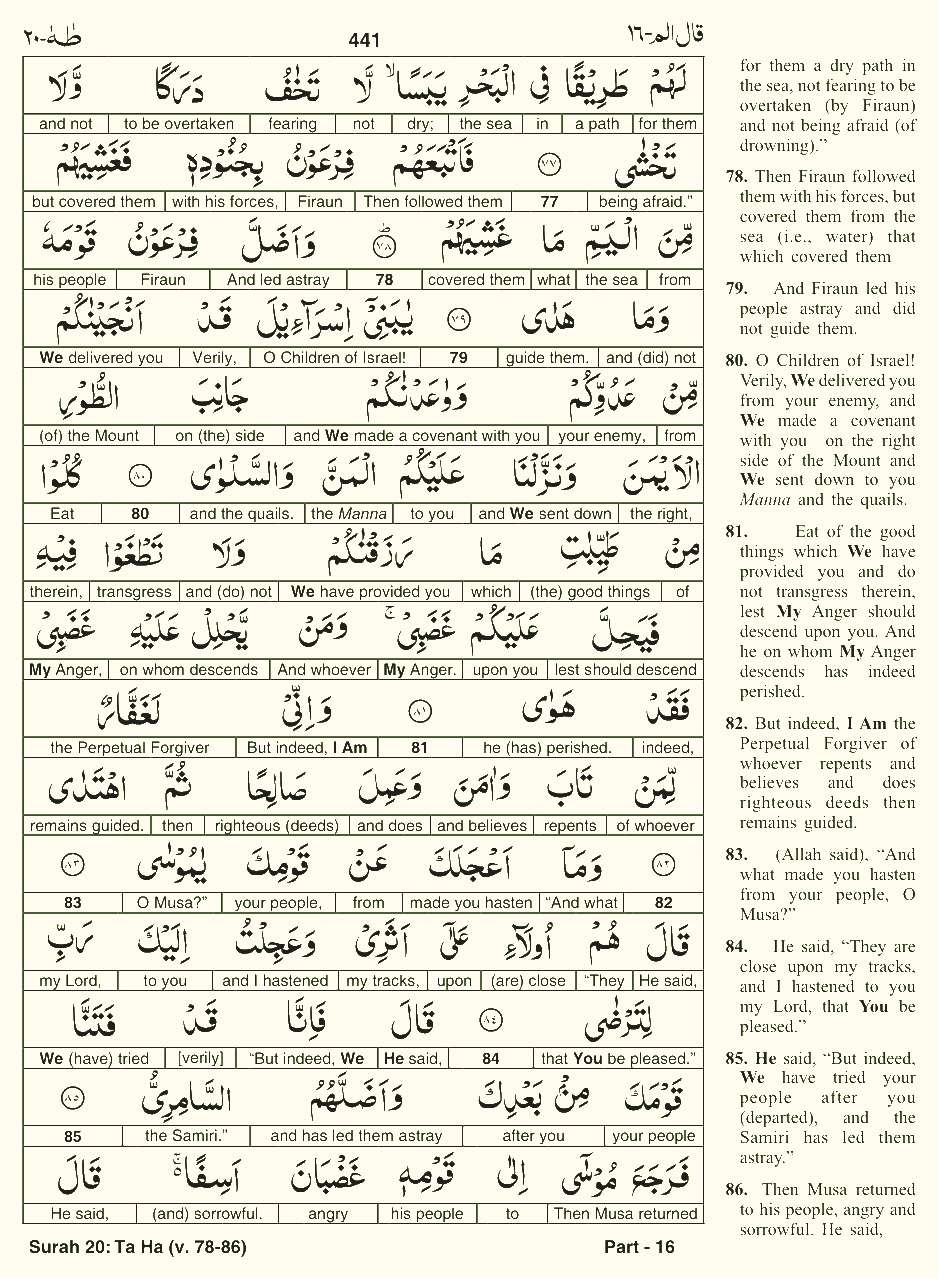 طٰهٰ-٢٠
441
قال الم-١٦
لَهُمْ طَرِيْقًا فِى الْبَحْرِ يَبَسًا ۙ لَّا تَخٰفُ دَرَكًا وَّلَا
and not to be overtaken fearing not dry; the sea in a path for them
تَخْشٰى ﴿٧٧﴾ فَاَتْبَعَهُمْ فِرْعَوْنُ بِجُنُوْدِهٖ فَغَشِيَهُمْ
but covered them with his forces, Firaun Then followed them 77 being afraid."
مِّنَ الْيَمِّ مَا غَشِيَهُمْ ﴿٧٨﴾ؕ وَاَضَلَّ فِرْعَوْنُ قَوْمَهٗ
his people Firaun And led astray 78 covered them what the sea from
وَمَا هَدٰى ﴿٧٩﴾ يٰبَنِىْۤ اِسْرَآءِيْلَ قَدْ اَنْجَيْنٰكُمْ
We delivered you Verily, O Children of Israel! 79 guide them. and (did) not
مِّنْ عَدُوِّكُمْ وَوٰعَدْنٰكُمْ جَانِبَ الطُّوْرِ
(of) the Mount on (the) side and We made a covenant with you your enemy, from
الْاَيْمَنَ وَنَزَّلْنَا عَلَيْكُمُ الْمَنَّ وَالسَّلْوٰى ﴿٨٠﴾ كُلُوْا
Eat 80 and the quails. the Manna to you and We sent down the right,
مِنْ طَيِّبٰتِ مَا رَزَقْنٰكُمْ وَلَا تَطْغَوْا فِيْهِ
therein, transgress and (do) not We have provided you which (the) good things of
فَيَحِلَّ عَلَيْكُمْ غَضَبِىْ ۚ وَمَنْ يَّحْلِلْ عَلَيْهِ غَضَبِىْ
My Anger, on whom descends And whoever My Anger. upon you lest should descend
فَقَدْ هَوٰى ﴿٨١﴾ وَاِنِّىْ لَغَفَّارٌ
the Perpetual Forgiver But indeed, I Am 81 he (has) perished. indeed,
لِّمَنْ تَابَ وَاٰمَنَ وَعَمِلَ صَالِحًا ثُمَّ اهْتَدٰى
remains guided. then righteous (deeds) and does and believes repents of whoever
﴿٨٢﴾ وَمَاۤ اَعْجَلَكَ عَنْ قَوْمِكَ يٰمُوْسٰى ﴿٨٣﴾
83 O Musa?” your people, from made you hasten “And what 82
قَالَ هُمْ اُولَآءِ عَلٰٓى اَثَرِىْ وَعَجِلْتُ اِلَيْكَ رَبِّ
my Lord, to you and I hastened my tracks, upon (are) close “They He said,
لِتَرْضٰى ﴿٨٤﴾ قَالَ فَاِنَّا قَدْ فَتَنَّا
We (have) tried [verily] “But indeed, We He said, 84 that You be pleased.”
قَوْمَكَ مِنْۢ بَعْدِكَ وَاَضَلَّهُمُ السَّامِرِىُّ ﴿٨٥﴾
85 the Samiri.” and has led them astray after you your people
فَرَجَعَ مُوْسٰٓى اِلٰى قَوْمِهٖ غَضْبَانَ اَسِفًا ۚ۬ قَالَ
He said, (and) sorrowful. angry his people to Then Musa returned
for them a dry path in
the sea, not fearing to be
overtaken (by Firaun)
and not being afraid (of
drowning).”
78. Then Firaun followed
them with his forces, but
covered them from the
sea (i.e., water) that
which covered them
79. And Firaun led his
people astray and did
not guide them.
80. O Children of Israel!
Verily, We delivered you
from your enemy, and
We made a covenant
with you on the right
side of the Mount and
We sent down to you
Manna and the quails.
81. Eat of the good
things which We have
provided you and do
not transgress therein,
lest My Anger should
descend upon you. And
he on whom My Anger
descends has indeed
perished.
82. But indeed, I Am the
Perpetual Forgiver of
whoever repents and
believes and does
righteous deeds then
remains guided.
83. (Allah said), “And
what made you hasten
from your people, O
Musa?”
84. He said, “They are
close upon my tracks,
and I hastened to you
my Lord, that You be
pleased.”
85. He said, “But indeed,
We have tried your
people after you
(departed), and the
Samiri has led them
astray.”
86. Then Musa returned
to his people, angry and
sorrowful. He said,
Surah 20: Ta Ha (v. 78-86)
Part - 16